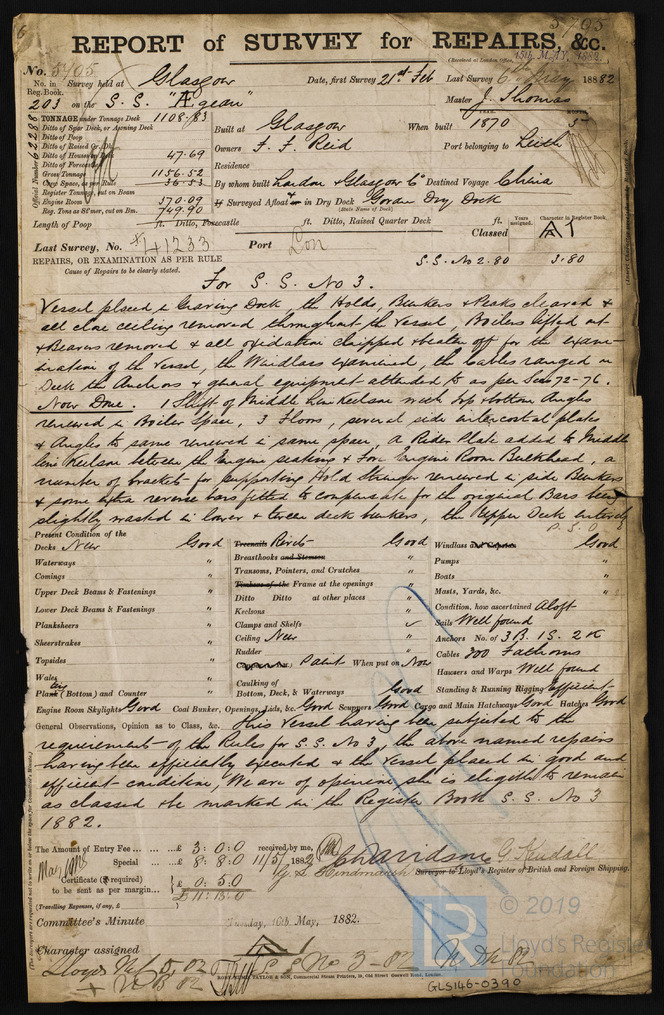 5705
REPORT of SURVEY for REPAIRS, &c.
(Received at London Office, 15th MAY 1882
No. 5705
No. in Survey held at Glasgow Date, first Survey 21st Feb Last Survey 6th May 1882
Reg. Book.
203 on the S. S. "Ægean" Master J. Thomas
TONNAGE under Tonnage Deck 1108.83
Ditto of Spar Deck, or Awning Deck
Ditto of Poop
Ditto of Raised Qr. Dk.
Ditto of Houses on Dk. 47.69
Ditto of Forecastle
Gross Tonnage 1156.52
Crew Space, as per Rule 36.53
Register Tonnage, cut on Beam
Engine Room 370.09
Reg. Tons as St'mer, cut on Bm. 749.90
Official Number 62288
Built at Glasgow When built 1870
Owners F. F. Reid Port belonging to Leith
Residence
By whom built London & Glasgow Co Destined Voyage China
If Surveyed Afloat or in Dry Dock Govan Dry Dock
(State Name of Dock)
Length of Poop ft. Ditto, Forecastle ft. Ditto, Raised Quarter Deck ft.
Classed Years assigned. Character in Register Book. A1
Last Survey, No. 41233 Port Lon
S. S. No 2. 80 3.80
REPAIRS, OR EXAMINATION AS PER RULE
Cause of Repairs to be clearly stated.
For S. S. No 3.
Vessel placed in Graving Dock, the Holds, Bunkers & Peaks cleared &
all close ceiling removed throughout the vessel, Boilers lifted out
& Bearers removed & all oxidation chipped & beaten off for the exami-
nation of the vessel, the Windlass examined, the Cables ranged on
Deck the Anchors & general equipment attended to as per Secs 72-76.
Now Done. 1 Shift of Middle Line Keelson with top & bottom Angles
renewed in Boiler Space, 3 Floors, several side intercostal plates
& Angles to same renewed in same space, a Rider Plate added to Middle
line Keelson between the Engine seating & Fore Engine Room Bulkhead, a
number of brackets for supporting Hold Stringer renewed in side Bunkers
& some extra reverse bars fitted to compensate for the original Bars being
slightly wasted in lower & tween deck bunkers, the Upper Deck entirely
P. T. O.
Present Condition of the
Decks New Good
Waterways "
Comings "
Upper Deck Beams & Fastenings "
Lower Deck Beams & Fastenings "
Planksheers "
Sheerstrakes "
Topsides "
Wales "
Plank (Bottom) and Counter "
Treenails Rivets Good
Breasthooks and Stemson "
Transoms, Pointers, and Crutches "
Timbers of the Frame at the openings "
Ditto Ditto at other places "
Keelsons "
Clamps and Shelfs
Ceiling New "
Rudder "
Paint When put on Now
Caulking of
Bottom, Deck, & Waterways Good
Windlass and Capstan Good
Pumps "
Boats "
Masts, Yards, &c. "
Condition, how ascertained Aloft
Sails Well found
Anchors No. of 3 B. 1 S. 2 K
Cables 300 Fathoms
Hausers and Warps Well found
Standing & Running Rigging Efficient
Engine Room Skylights Good Coal Bunker, Openings, Lids, &c. Good Scuppers Good Cargo and Main Hatchways Good Hatches Good
General Observations, Opinion as to Class, &c. This vessel having been subjected to the
requirements of the Rules for S. S. No 3, the above named repairs
having been efficiently executed & the vessel placed in good and
efficient condition, We are of opinion, she is eligible to remain
as classed & be marked in the Register Book S. S. No 3
1882.
The Amount of Entry Fee ... £ 3:0:0 received by me,
Special ... £ 8:8:0 11/5/1882
Certificate (if required) £ 0:5:0
to be sent as per margin... £ 11:13:0
(Travelling Expenses, if any, £ )
Surveyor to Lloyd's Register of British and Foreign Shipping.
Committee's Minute Tuesday, 16th May, 1882.
Character assigned A 1
S S No 3-5-82
TAYLOR & SON, Commercial Steam Printers, 19, Old Street Goswell Road, London.
© 2019
LR
Lloyd's Register
Foundation
GLS146-0390